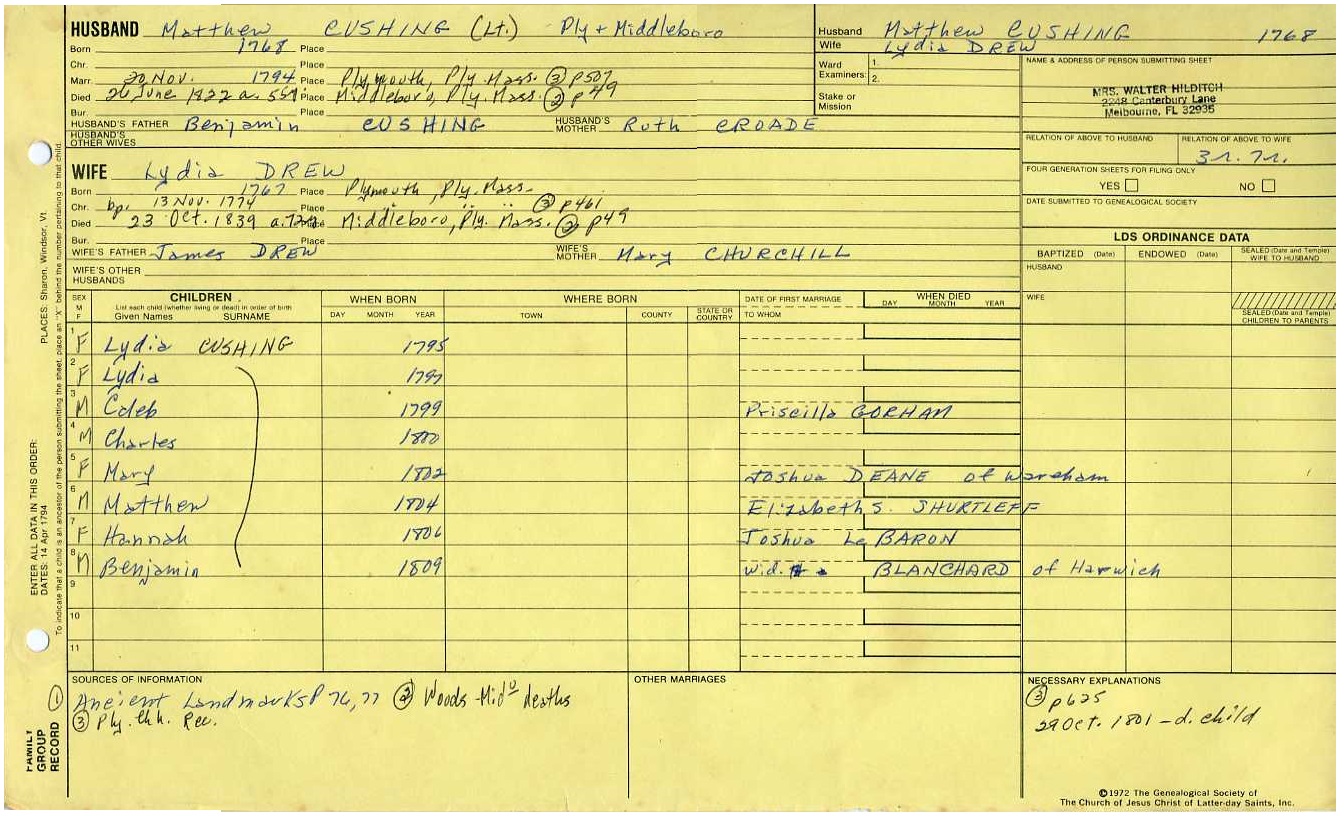 HUSBAND Matthew CUSHING (Lt.) Ply + Middleboro
Born 1768 Place
Chr. Place
Marr. 20 Nov. 1794 Place Plymouth, Ply. Mass. ③ p507
Died 26 June 1822 a. 55y Place Middleboro, Ply. Mass. ② p49
Bur. Place
HUSBAND'S FATHER Benjamin CUSHING HUSBAND'S MOTHER Ruth CROADE
HUSBAND'S OTHER WIVES
Husband Matthew CUSHING 1768
Wife Lydia DREW
Ward Examiners: 1. 2.
Stake or Mission
NAME & ADDRESS OF PERSON SUBMITTING SHEET
MRS. WALTER HILDITCH
2248 Canterbury Lane
Melbourne, FL 32935
RELATION OF ABOVE TO HUSBAND RELATION OF ABOVE TO WIFE
FOUR GENERATION SHEETS FOR FILING ONLY
YES NO
DATE SUBMITTED TO GENEALOGICAL SOCIETY
WIFE Lydia DREW
Born 1767 Place Plymouth, Ply. Mass.
Chr. bp. 13 Nov. 1774 Place " " " ③ p461
Died 23 Oct. 1839 a. 72y Place Middleboro, Ply. Mass. ② p49
Bur. Place
WIFE'S FATHER James DREW WIFE'S MOTHER Mary CHURCHILL
WIFE'S OTHER HUSBANDS
LDS ORDINANCE DATA
BAPTIZED (Date) ENDOWED (Date) SEALED (Date and Temple) WIFE TO HUSBAND
HUSBAND
WIFE
SEALED (Date and Temple) CHILDREN TO PARENTS
SEX M F CHILDREN WHEN BORN WHERE BORN DATE OF FIRST MARRIAGE WHEN DIED
List each child (whether living or dead) in order of birth
Given Names SURNAME DAY MONTH YEAR TOWN COUNTY STATE OR COUNTRY TO WHOM DAY MONTH YEAR
1 F Lydia CUSHING 1795
2 F Lydia 1797
3 M Caleb 1799 Priscilla GORHAM
4 M Charles 1800
5 F Mary 1802 Joshua DEANE of Wareham
6 M Matthew 1804 Elizabeth S. SHURTLEFF
7 F Hannah 1806 Joshua Le BARON
8 M Benjamin 1809 wid. BLANCHARD of Harwich
9
10
11
SOURCES OF INFORMATION
① Ancient Landmarks P 76, 77 ② Woods Mid° deaths
③ Ply. Chh. Rec.
OTHER MARRIAGES
NECESSARY EXPLANATIONS
③ p625
29 Oct. 1801 - d. child
FAMILY GROUP RECORD
ENTER ALL DATA IN THIS ORDER:
DATES: 14 Apr 1794
PLACES: Sharon, Windsor, Vt.
To indicate that a child is an ancestor of the person submitting the sheet, place an "X" behind the number pertaining to that child.
©1972 The Genealogical Society of
The Church of Jesus Christ of Latter-day Saints, Inc.